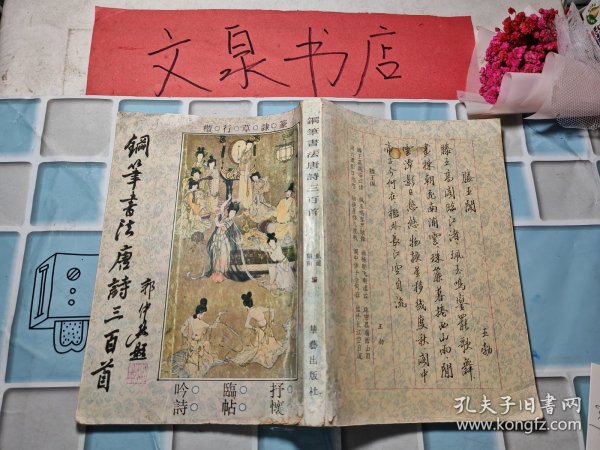 文泉书店
鋼筆書法唐詩三百首
楷○行○草○隸○篆
抒懷○
臨帖○
吟詩○
鋼筆書法唐詩三百首
編
華藝出版社
滕王閣
王勃
滕王高閣臨江渚珮玉鳴鸞罷歌舞
畫棟朝飛南浦雲珠簾暮捲西山雨閒
雲潭影日悠悠物換星移幾度秋閣中
帝子今何在檻外長江空自流
滕王閣
王勃
孔夫子旧书网
kongfz.com